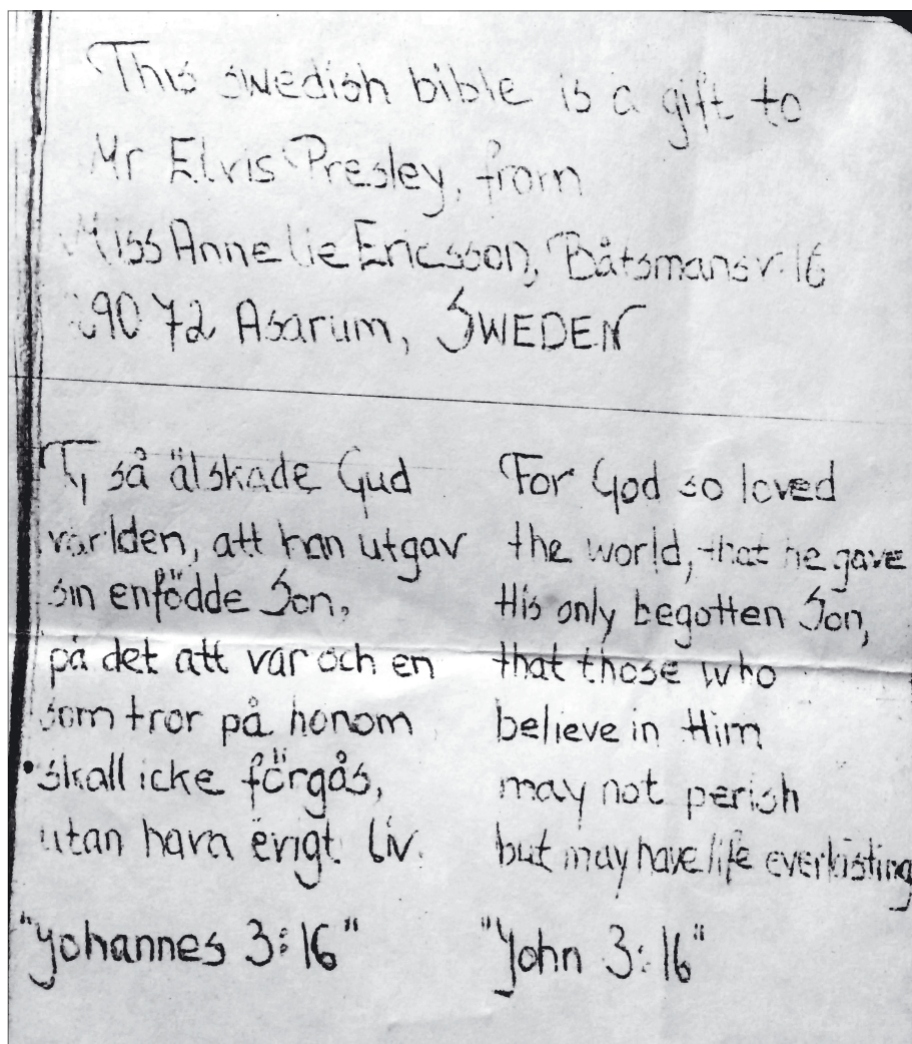 This swedish bible is a gift to
Mr Elvis Presley, from
Miss Annelie Ericsson, Båtsmansv. 16
29072 Asarum, SWEDEN
Ty så älskade Gud
världen, att han utgav
sin enfödde Son,
på det att var och en
som tror på honom
skall icke förgås,
utan hava evigt liv.
"Johannes 3:16"
For God so loved
the world, that he gave
His only begotten Son,
that those who
believe in Him
may not perish
but may have life everlasting
"John 3:16"